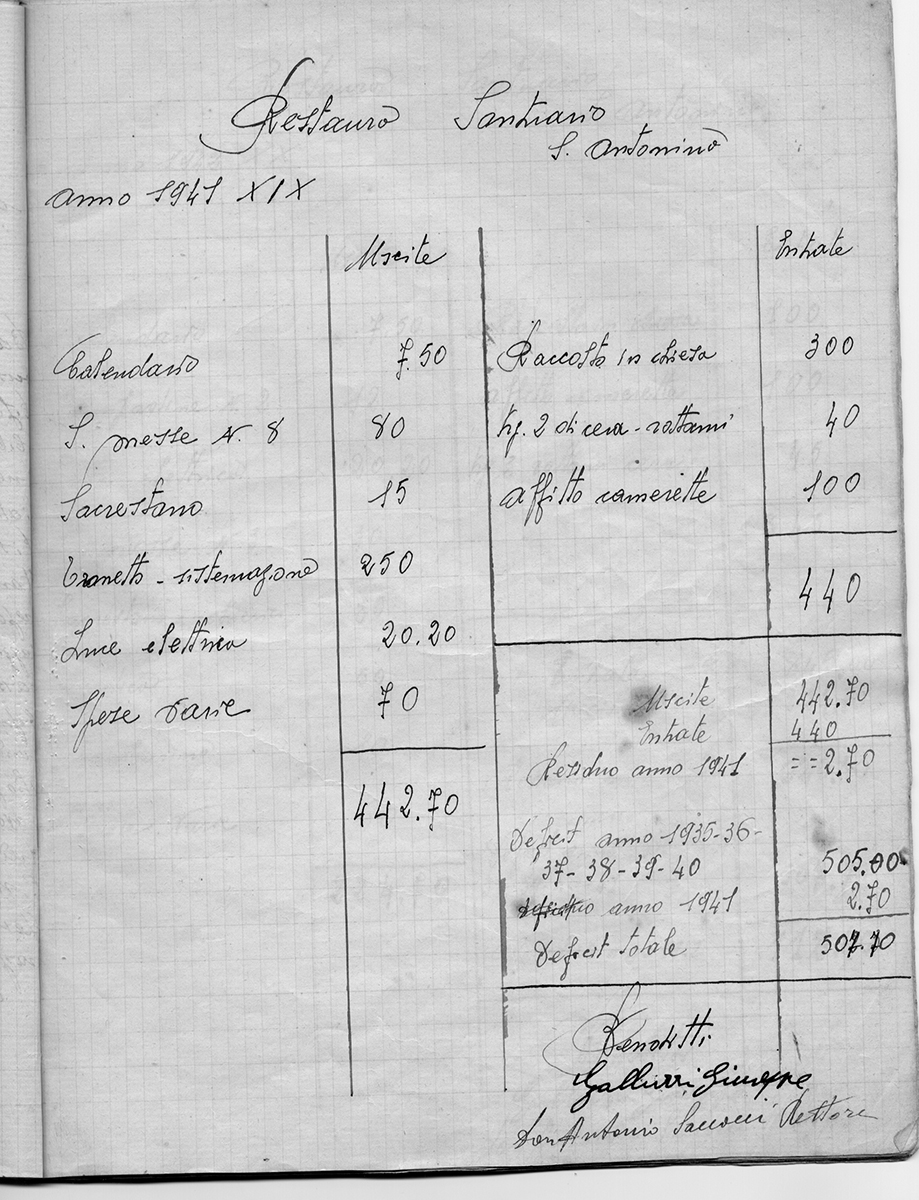 Restauro Santuario
S. Antonino
anno 1941 XIX
Uscite
Calendario 7.50
S. messe N. 8 80
Sacrestano 15
sistemazione 250
Luce elettrica 20.20
Spese varie 70
442.70
Entrate
Raccolta in chiesa 300
Kg. 2 di cera - rottami 40
affitto camerette 100
440
Uscite 442.70
Entrate 440
Residuo anno 1941 ==2.70
Deficit anno 1935-36-
37-38-39-40 505.00
anno 1941 2.70
Deficit totale 507.70
Benedetti
Giuseppe
Don Antonio Saccocci Rettore